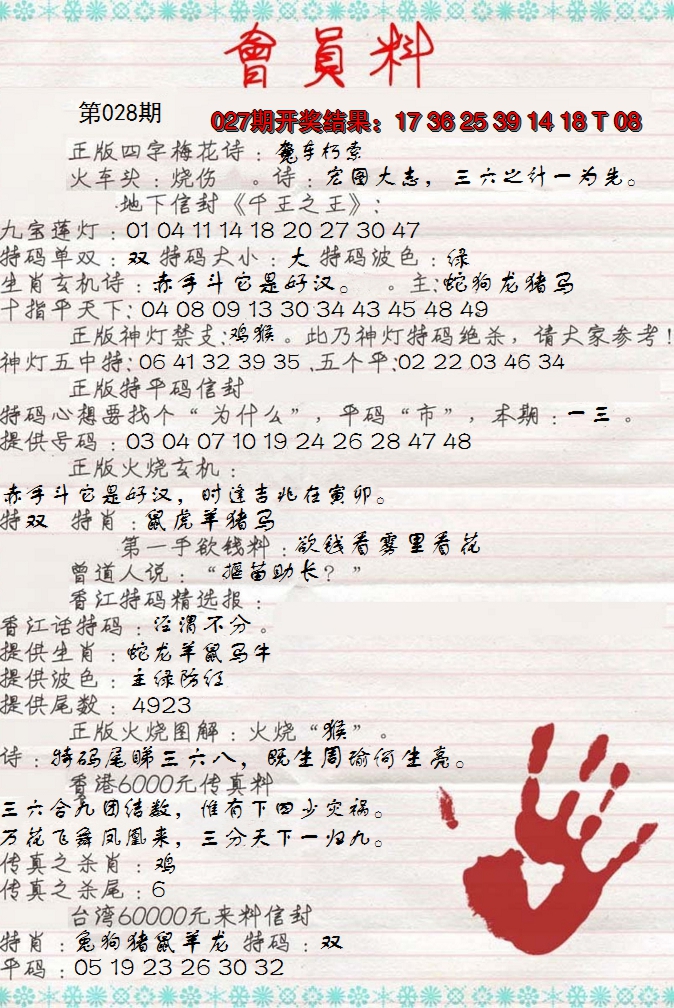 會員料
第028期
027期开奖结果：17 36 25 39 14 18 T 08
正版四字梅花诗：龛车朽索
火车头：烧伤 。诗：宏图大志，三六之计一为先。
地下信封《千王之王》：
九宝莲灯：01 04 11 14 18 20 27 30 47
特码单双：双 特码大小：大 特码波色：绿
生肖玄机诗：赤手斗它是好汉。 。主:蛇狗龙猪马
十指平天下: 04 08 09 13 30 34 43 45 48 49
正版神灯禁支:鸡猴。此乃神灯特码绝杀，请大家参考!
神灯五中特:06 41 32 39 35 .五个平:02 22 03 46 34
正版特平码信封
特码心想要找个“为什么”，平码“市”，本期：一三 。
提供号码：03 04 07 10 19 24 26 28 47 48
正版火烧玄机：
赤手斗它是好汉，时逢吉兆在寅卯。
特双 特肖：鼠虎羊猪马
第一手欲钱料：欲钱看雾里看花
曾道人说：“揠苗助长？”
香江特码精选报：
香江话特码：泾渭不分。
提供生肖：蛇龙羊鼠马牛
提供波色：主绿防红
提供尾数：4923
正版火烧图解：火烧“猴”。
诗：特码尾睇三六八，既生周瑜何生亮。
香港6000元传真料
三六合九团结数，惟有下四少灾祸。
万花飞舞凤凰来，三分天下一归九。
传真之杀肖：鸡
传真之杀尾：6
台湾60000元来料信封
特肖：兔狗猪鼠羊龙 特码：双
平码：05 19 23 26 30 32